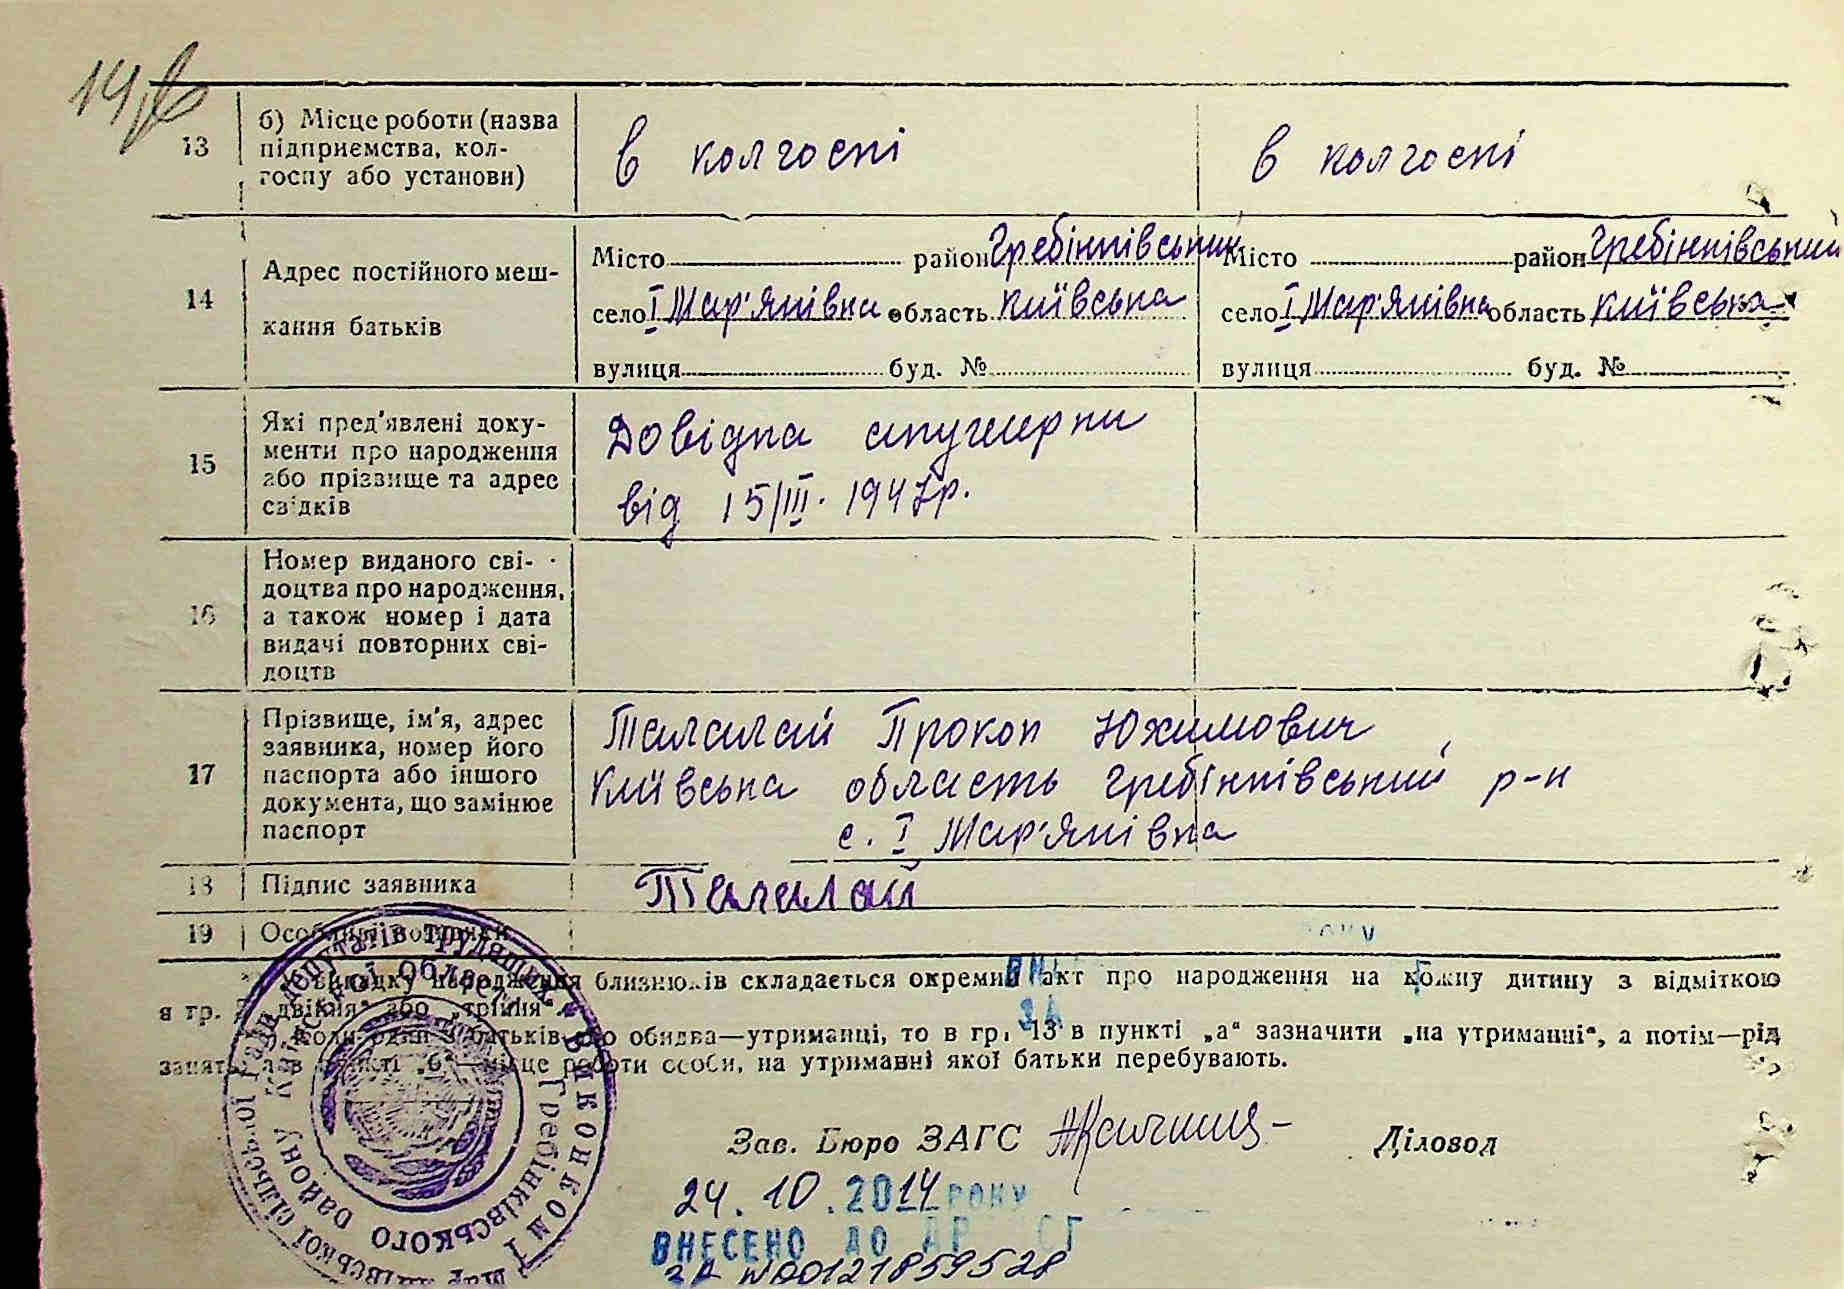 14
13
б) Місце роботи (назва
підприємства, кол-
госпу або установи)
в колгоспі
в колгоспі
14
Адрес постійного меш-
кання батьків
Місто район Гребінківський
село І Мар'янівка область Київська
вулиця буд. №
Місто район Гребінківський
село І Мар'янівка область Київська
вулиця буд. №
15
Які пред'явлені доку-
менти про народження
або прізвище та адрес
свідків
Довідка акушерки
від 15/III. 1947р.
16
Номер виданого сві-
доцтва про народження,
а також номер і дата
видачі повторних сві-
доцтв
17
Прізвище, ім'я, адрес
заявника, номер його
паспорта або іншого
документа, що замінює
паспорт
Талалай Прокоп Юхимович
Київська область Гребінківський р-н
с. І Мар'янівка
18
Підпис заявника
Талалай
19
Особливі помітки
року
випадку народження близнюків складається окремий акт про народження на кожну дитину з відміткою
в гр. „двійня“ або „трійня“.
Коли один з батьків або обидва—утриманці, то в гр. 13 в пункті „а“ зазначити „на утриманні“, а потім—рід
занять, а в пункті „б“—місце роботи особи, на утриманні якої батьки перебувають.
Зав. Бюро ЗАГС
Діловод
24.10.2014 РОКУ
ВНЕСЕНО ДО ДР СГ
ЗА №00121859528
Виконком Мар'янівської сільської ради депутатів трудящих
Гребінківського району Київської області